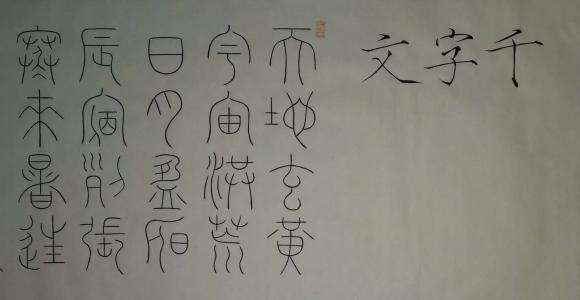 千字文
天地玄黃
宇宙洪荒
日月盈昃
辰宿列張
寒來暑往